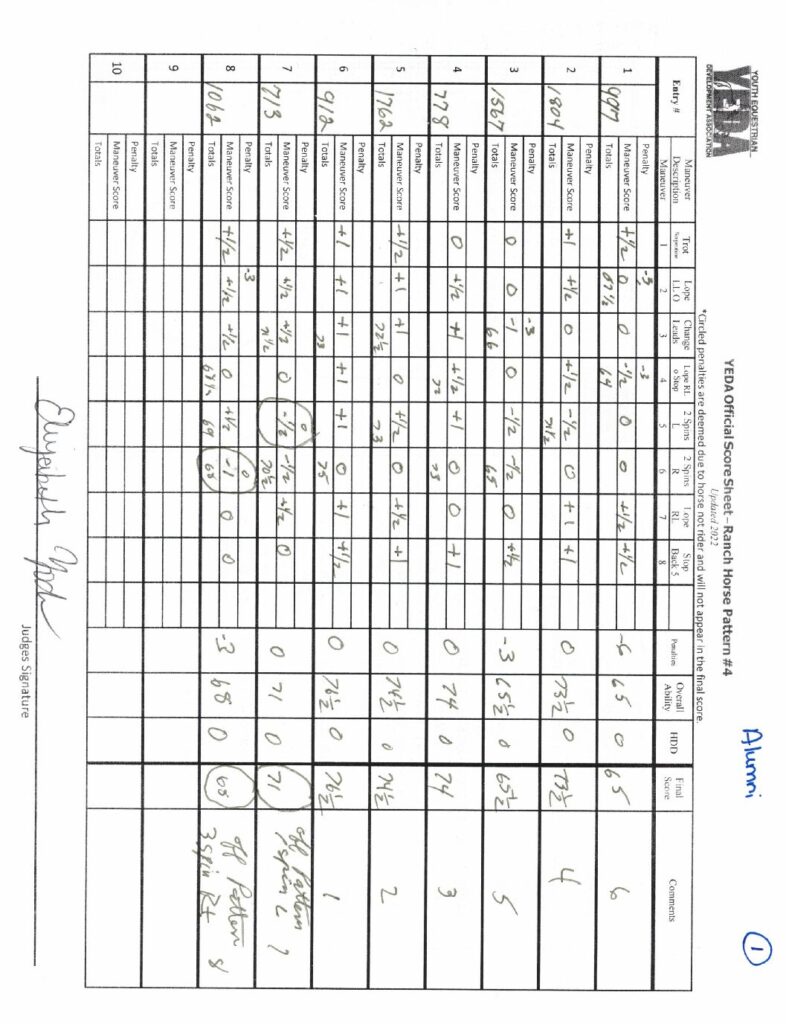 YOUTH EQUESTRIAN
YEDA
DEVELOPMENT ASSOCIATION
Alumni
1
YEDA Official Score Sheet – Ranch Horse Pattern #4
Updated 2022
*Circled penalties are deemed due to horse not rider and will not appear in the final score.
Entry # Maneuver Description Trot Serpentine Lope LL O Change Leads Lope RL o Stop 2 Spins L 2 Spins R Lope RL Stop Back 5 Penalties Overall Ability HDD Final Score Comments
Maneuver 1 2 3 4 5 6 7 8
1 Penalty -3 -3
Maneuver Score +1/2 0 0 -1/2 0 0 +1/2 +1/2 65 0 65 6
Totals 67 1/2 64
2 1804 Penalty
Maneuver Score +1 +1/2 0 +1/2 -1/2 0 +1 +1 0 73 1/2 0 73 1/2 4
Totals 71 1/2
3 1567 Penalty -3
Maneuver Score 0 0 -1 0 -1/2 -1/2 0 +1/2 -3 65 1/2 0 65 1/2 5
Totals 66 65
4 778 Penalty
Maneuver Score 0 +1/2 +1 +1/2 +1 0 0 +1 0 74 0 74 3
Totals 72 73
5 1762 Penalty
Maneuver Score +1/2 +1 +1 0 +1/2 0 +1/2 +1 0 74 1/2 0 74 1/2 2
Totals 72 1/2 73
6 912 Penalty
Maneuver Score +1 +1 +1 +1 +1 0 +1 +1/2 0 76 1/2 0 76 1/2 1
Totals 73 75
7 713 Penalty 0
Maneuver Score +1/2 +1/2 +1/2 0 -1/2 -1/2 +1/2 0 0 71 0 71 off Pattern 1 spin L 7
Totals 71 1/2 70 1/2
8 1062 Penalty -3 0
Maneuver Score +1/2 +1/2 +1/2 0 +1/2 -1 0 0 -3 68 0 68 off Pattern 3 spin Rt 8
Totals 68 1/2 69 68
9 Penalty
Maneuver Score
Totals
10 Penalty
Maneuver Score
Totals
Judges Signature